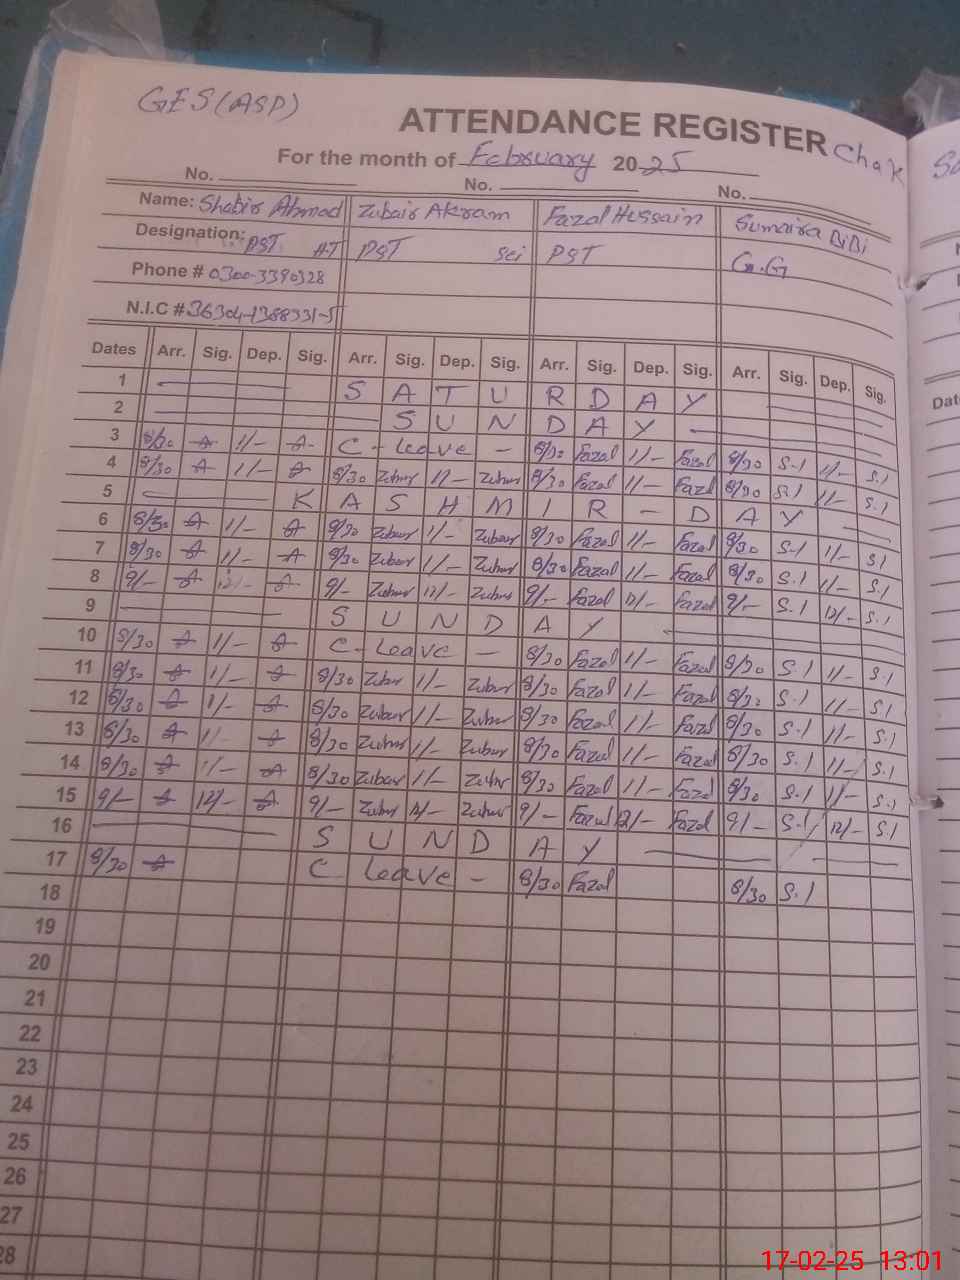 GES(ASP)
ATTENDANCE REGISTER Chak
For the month of February 2025
No. No. No.
Name: Shabir Ahmad Zubair Akram Fazal Hussain Sumaira BiBi
Designation: PST HT PST Sci PST G.G
Phone # 0300-3390328
N.I.C # 36304-1388331-5
Dates Arr. Sig. Dep. Sig. Arr. Sig. Dep. Sig. Arr. Sig. Dep. Sig. Arr. Sig. Dep. Sig.
1 S A T U R D A Y
2 S U N D A Y
3 8/30 1/- C - Leave - 8/30 Fazal 1/- Fazal 8/30 S.1 1/- S.1
4 8/30 1/- 8/30 Zubair 1/- Zubair 8/30 Fazal 1/- Fazal 8/30 S.1 1/- S.1
5 K A S H M I R - D A Y
6 8/30 1/- 8/30 Zubair 1/- Zubair 8/30 Fazal 1/- Fazal 8/30 S.1 1/- S.1
7 8/30 1/- 8/30 Zubair 1/- Zubair 8/30 Fazal 1/- Fazal 8/30 S.1 1/- S.1
8 9/- 12/- 9/- Zubair 12/- Zubair 9/- Fazal 12/- Fazal 9/- S.1 12/- S.1
9 S U N D A Y
10 8/30 1/- C - Leave - 8/30 Fazal 1/- Fazal 8/30 S.1 1/- S.1
11 8/30 1/- 8/30 Zubair 1/- Zubair 8/30 Fazal 1/- Fazal 8/30 S.1 1/- S.1
12 8/30 1/- 8/30 Zubair 1/- Zubair 8/30 Fazal 1/- Fazal 8/30 S.1 1/- S.1
13 8/30 1/- 8/30 Zubair 1/- Zubair 8/30 Fazal 1/- Fazal 8/30 S.1 1/- S.1
14 8/30 1/- 8/30 Zubair 1/- Zubair 8/30 Fazal 1/- Fazal 8/30 S.1 1/- S.1
15 9/- 12/- 9/- Zubair 12/- Zubair 9/- Fazal 12/- Fazal 9/- S.1 12/- S.1
16 S U N D A Y
17 8/30 C Leave - 8/30 Fazal 8/30 S.1
18
19
20
21
22
23
24
25
26
27
28
17-02-25 13:01